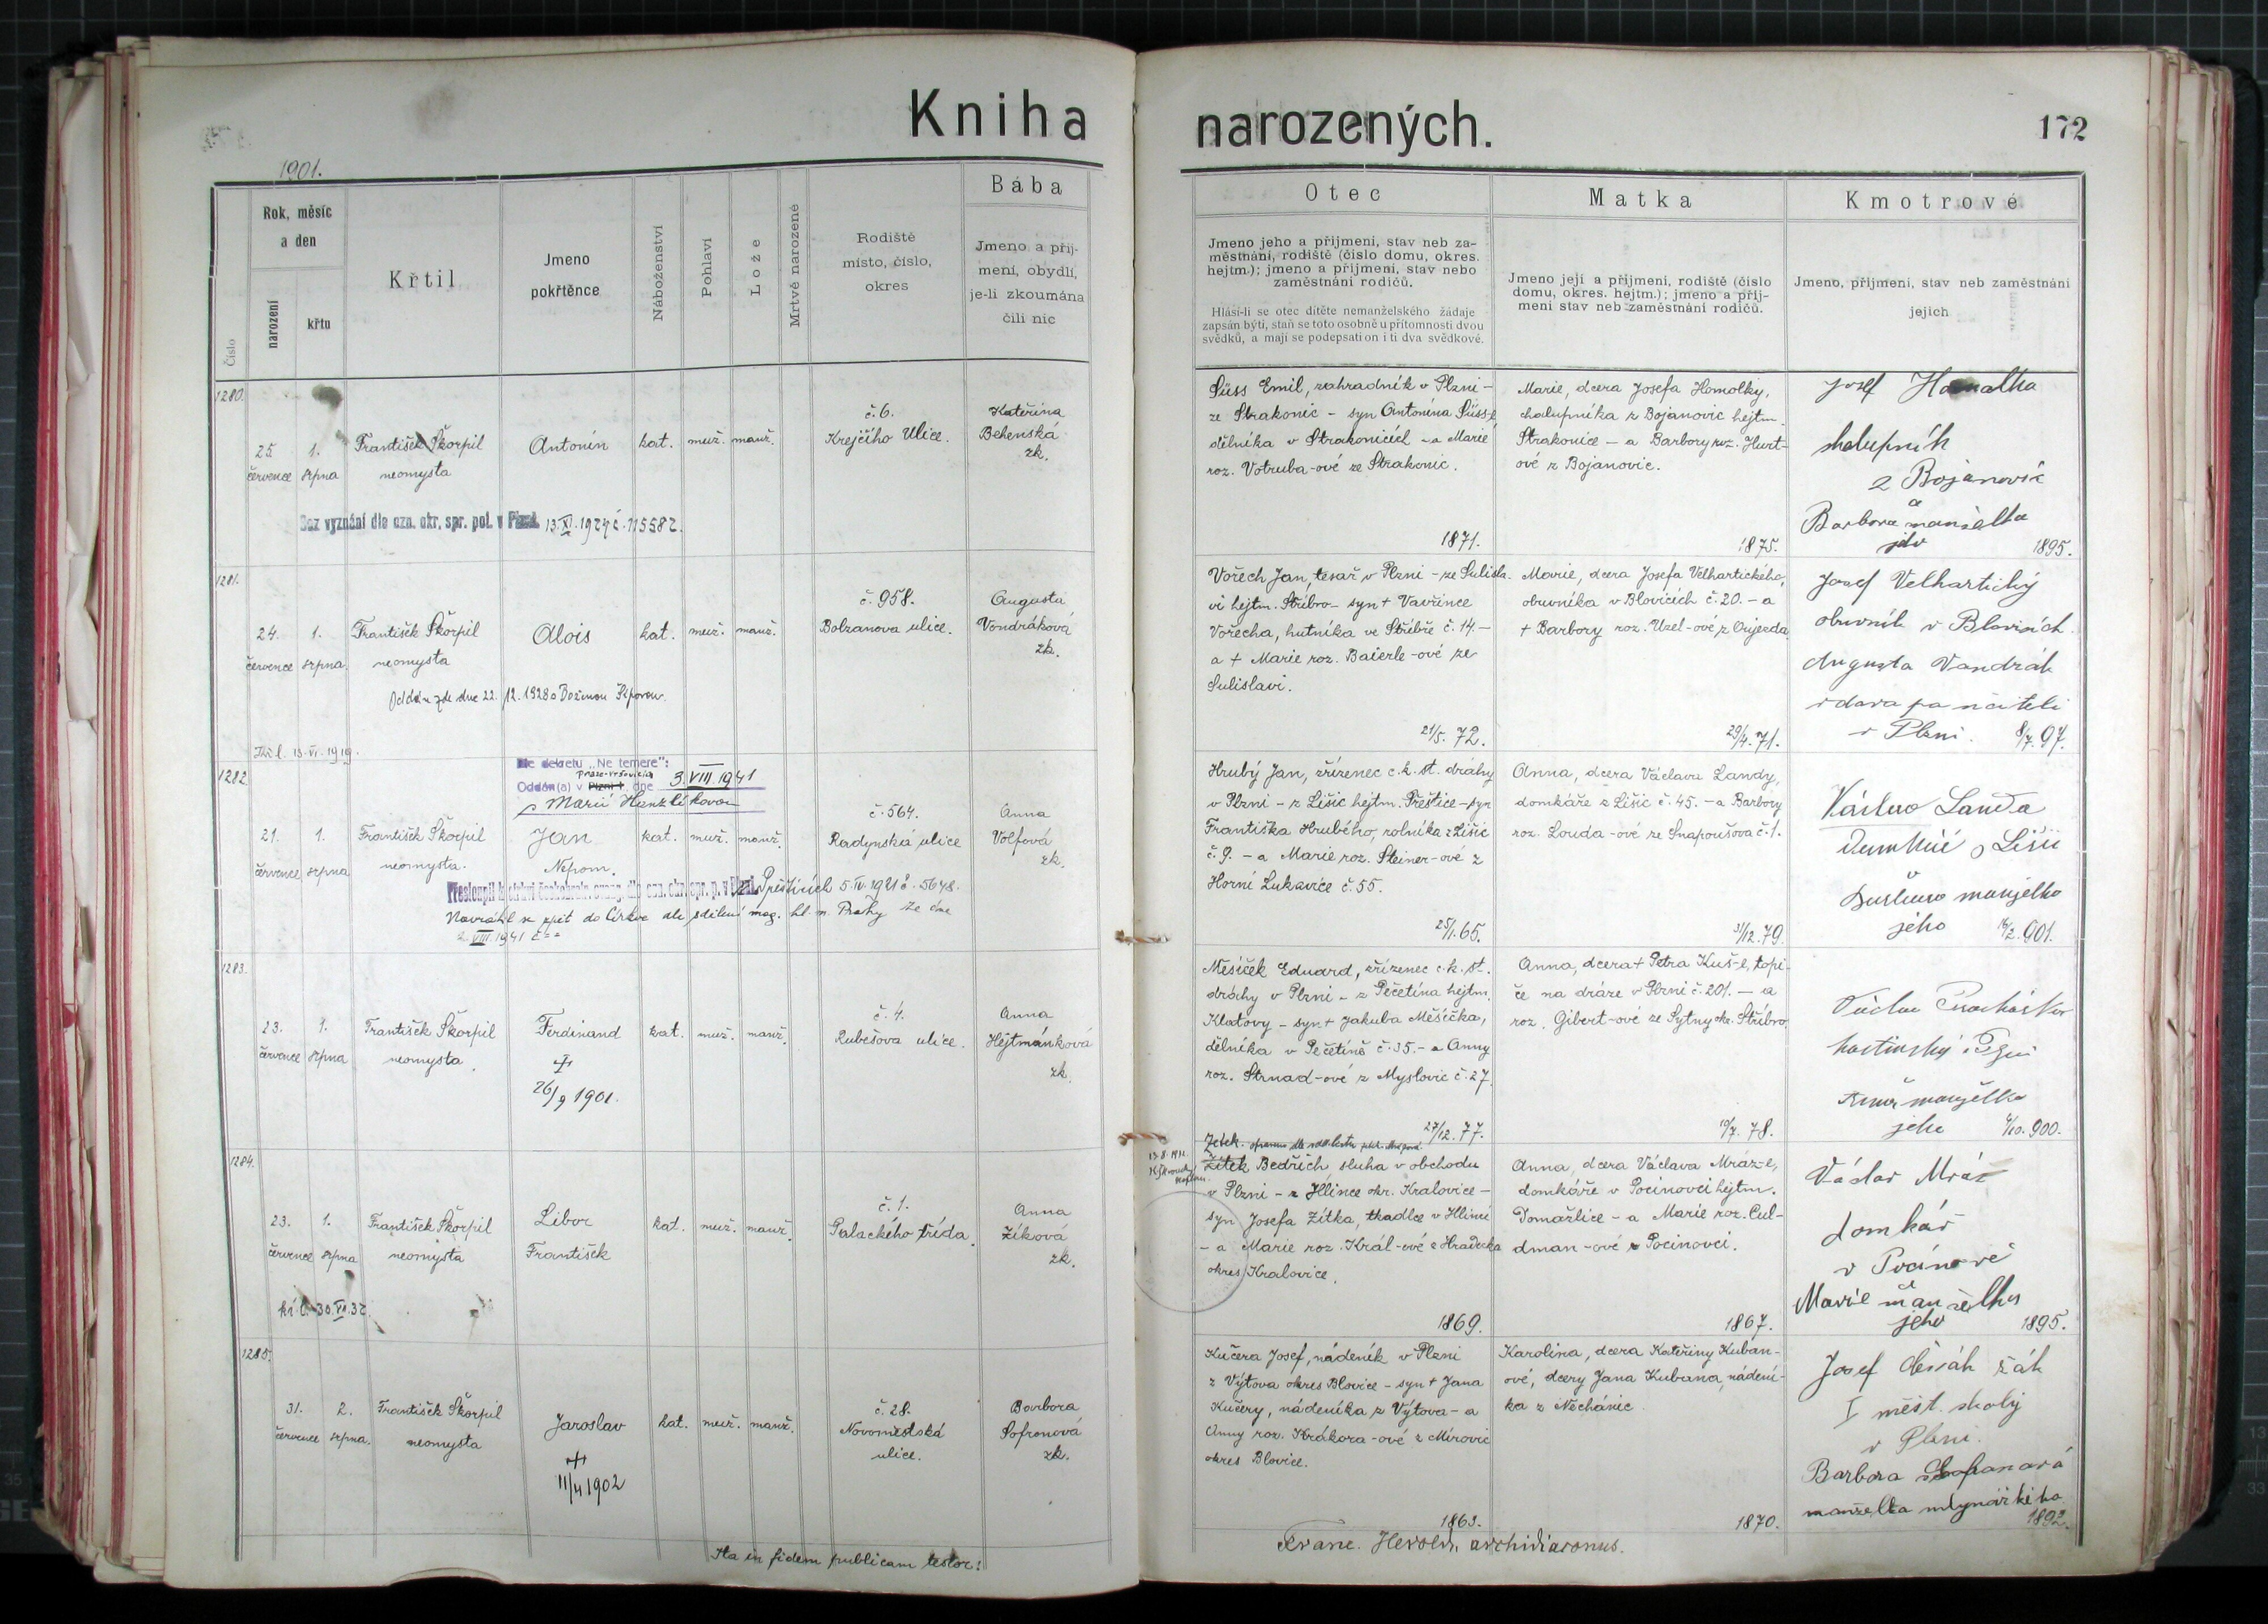 Kniha
narozených.
172
1901.
Rok, měsíc
a den
Číslo
narození
křtu
Křtil
Jmeno
pokřtěnce
Náboženství
Pohlaví
Lože
Mrtvě narozené
Rodiště
místo, číslo,
okres
Bába
Jmeno a příj-
mení, obydlí,
je-li zkoumána
čili nic
Otec
Jmeno jeho a příjmení, stav neb za-
městnání, rodiště (číslo domu, okres.
hejtm.); jmeno a příjmení, stav nebo
zaměstnání rodičů.
Hlásí-li se otec dítěte nemanželského žádaje
zapsán býti, staň se toto osobně u přítomnosti dvou
svědků, a mají se podepsati on i ti dva svědkové.
Matka
Jmeno její a příjmení, rodiště (číslo
domu, okres. hejtm.); jmeno a příj-
mení stav neb zaměstnání rodičů.
Kmotrové
Jmeno, příjmení, stav neb zaměstnání
jejich
1280.
25. července
1. srpna
František Škorpil
neomysta
Antonín
kat.
muž.
manž.
č. 6.
Krejčího Ulice.
Kateřina
Behenská
zk.
Bez vyznání dle ozn. okr. spr. pol. v Plzni. 13.XI.1924 č. 115582.
Süss Emil, zahradník v Plzni -
ze Strakonic - syn Antonína Süss-e,
dělníka v Strakonicích - a Marie
roz. Votruba-ové ze Strakonic.
1871.
Marie, dcera Josefa Homolky,
chalupníka z Bojanovic hejtm.
Strakonice - a Barbory roz. Hurt-
ové z Bojanovic.
1875.
Josef Homolka
chalupník
z Bojanovic
a
Barbora manželka
jeho
1895.
1281.
24. července
1. srpna.
František Škorpil
neomysta
Alois
kat.
muž.
manž.
č. 958.
Bolzanova ulice.
Augusta
Vondráková
zk.
Oddán zde dne 22. 12. 1928 s Boženou
Vořech Jan, tesař v Plzni - ze Sulisla-
vi hejtm. Stříbro - syn + Vavřince
Vořecha, hutníka ve Stříbře č. 14. -
a + Marie roz. Baierle-ové ze
Sulislavi.
21/5. 72.
Marie, dcera Josefa Velhartického,
obuvníka v Blovicích č. 20. - a
+ Barbory roz. Uzel-ové z Oujezda
29/4. 71.
Josef Velhartický
obuvník v Blovicích.
Augusta Vondrák
vdova po učiteli
v Plzni.
8/7. 97.
13. VI. 1919.
1282.
Dle dekretu „Ne temere":
Oddán(a) v Plzni I, dne 3. VIII. 1941
Praze-Vršovicích
s Marií Hunzlíkovou
21. července
1. srpna
František Škorpil
neomysta.
Jan
Nepom.
kat.
muž.
manž.
č. 564.
Radyňská ulice
Anna
Volfová
zk.
Přestoupil k církvi českobratr. evang. dle ozn. okr. spr. p. v Plzni. Přešticích 5. IV. 1921 č. 5648.
Navrátil se zpět do Církve dle sdělení mag. hl. m. Prahy ze dne
2. VIII. 1941 č
Hrubý Jan, zřízenec c. k. st. dráhy
v Plzni - z Lišic hejtm. Přeštice - syn
Františka Hrubého, rolníka z Lišic
č. 9. - a Marie roz. Steiner-ové z
Horní Lukavice č. 55.
25/1. 65.
Anna, dcera Václava Landy,
domkáře z Lišic č. 45. - a Barbory
roz. Louda-ové ze Snapoušova č. 1.
31/12. 79.
Václav Landa
jeho
901.
1283.
23. července
1. srpna
František Škorpil
neomysta.
Ferdinand
+
26/9 1901.
kat.
muž.
manž.
č. 4.
Rubešova ulice.
Anna
Hejtmánková
zk.
Měsíček Eduard, zřízenec c. k. st.
dráhy v Plzni - z Pečetína hejtm.
Klatovy - syn + Jakuba Měsíčka,
dělníka v Pečetíně č. 35. - a Anny
roz. Strnad-ové z Myslovic č. 27.
27/12. 77.
Anna, dcera + Petra Kuš-e, topi-
če na dráze v Plzni č. 201. - a
roz. Gibert-ové ze Sytny okr. Stříbro.
78.
hostinský
manželka
jeho
900.
1284.
23. července
1. srpna
František Škorpil
neomysta
Libor
František
kat.
muž.
manž.
č. 1.
Palackého třída.
Anna
Zíková
zk.
kř. l. 30. VI. 32.
Žitek Bedřich sluha v obchodu
v Plzni - z Hlince okr. Kralovice -
syn Josefa Zítka, tkadlce v Hlinci
- a Marie roz. Král-ové z Hradecka
okres Kralovice.
1869.
Anna, dcera Václava Mráz-e,
domkáře v Pocinovci hejtm.
Domažlice - a Marie roz. Cul-
dman-ové z Pocinovci.
1867.
Václav Mráz
domkář
v
a
Marie manželka
jeho
1895.
1285.
31. července
2. srpna.
František Škorpil
neomysta
Jaroslav
+
11/4 1902
kat.
muž.
manž.
č. 28.
Novoměstská
ulice.
Barbora
Sofronová
zk.
Kučera Josef, nádeník v Plzni
z Výtova okres Blovice - syn + Jana
Kučery, nádeníka z Výtova - a
Anny roz. Krákora-ové z Mírovic
okres Blovice.
1863.
Karolina, dcera Kateřiny Kuban-
ové, dcery Jana Kubana, nádení-
ka z Nechánic.
1870.
Josef žák
I měst. školy
v Plzni.
Barbora
manželka mlynářského
1892.
Ita in fidem publicam testor:
Franc. Herold, archidiaconus.